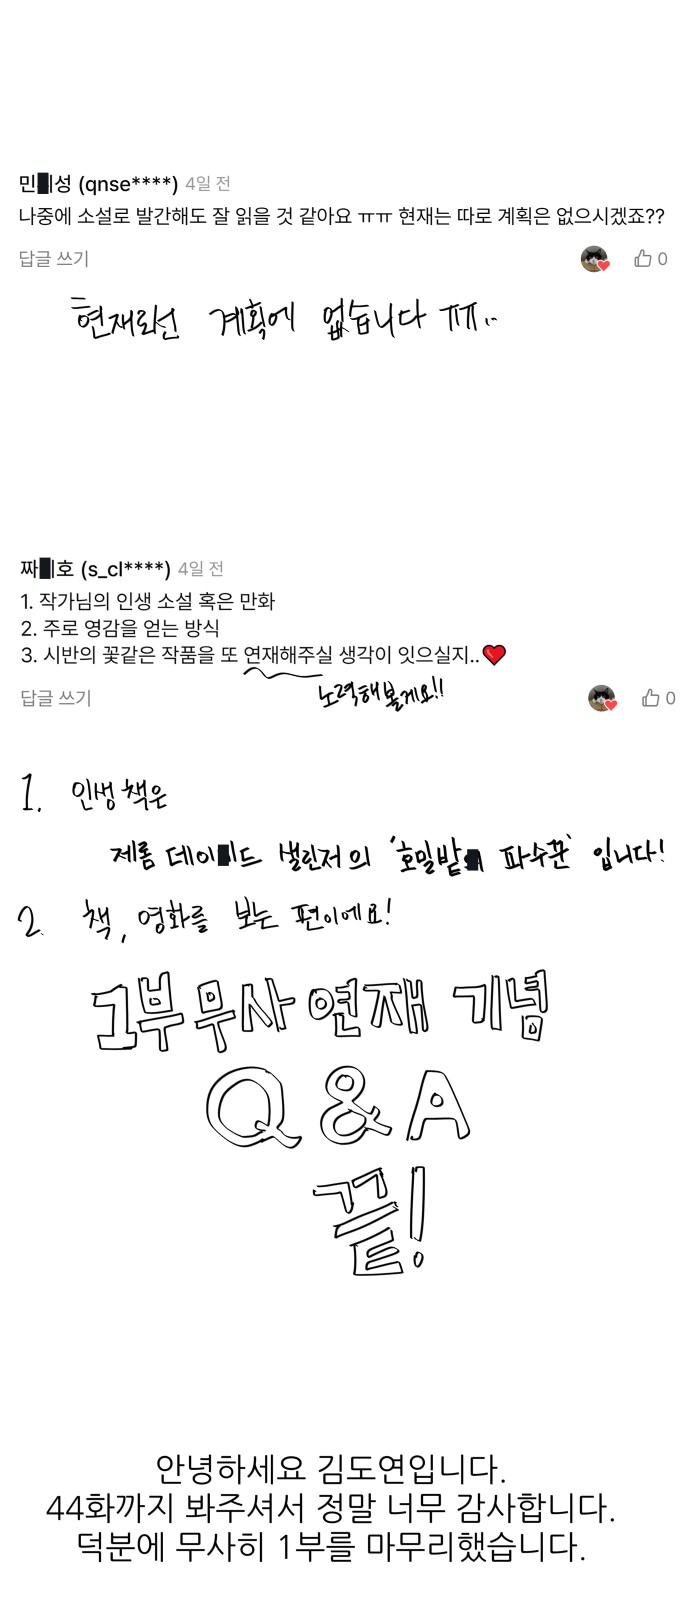 민 성 (qnse****) 4일 전
나중에 소설로 발간해도 잘 읽을 것 같아요 ㅠㅠ 현재는 따로 계획은 없으시겠죠??
답글 쓰기 0
현재로선 계획에 없습니다 ㅠㅠ..
짜 호 (s_cl****) 4일 전
1. 작가님의 인생 소설 혹은 만화
2. 주로 영감을 얻는 방식
3. 시반의 꽃같은 작품을 또 연재해주실 생각이 잇으실지..❤️
노력해볼게요!!
답글 쓰기 0
1. 인생책은
제롬 샐린저의 파수꾼' 입니다!
2. 책, 영화를 보는 편이에요!
1부 무사 연재 기념
Q & A
끝!
안녕하세요 김도연입니다.
44화까지 봐주셔서 정말 너무 감사합니다.
덕분에 무사히 1부를 마무리했습니다.